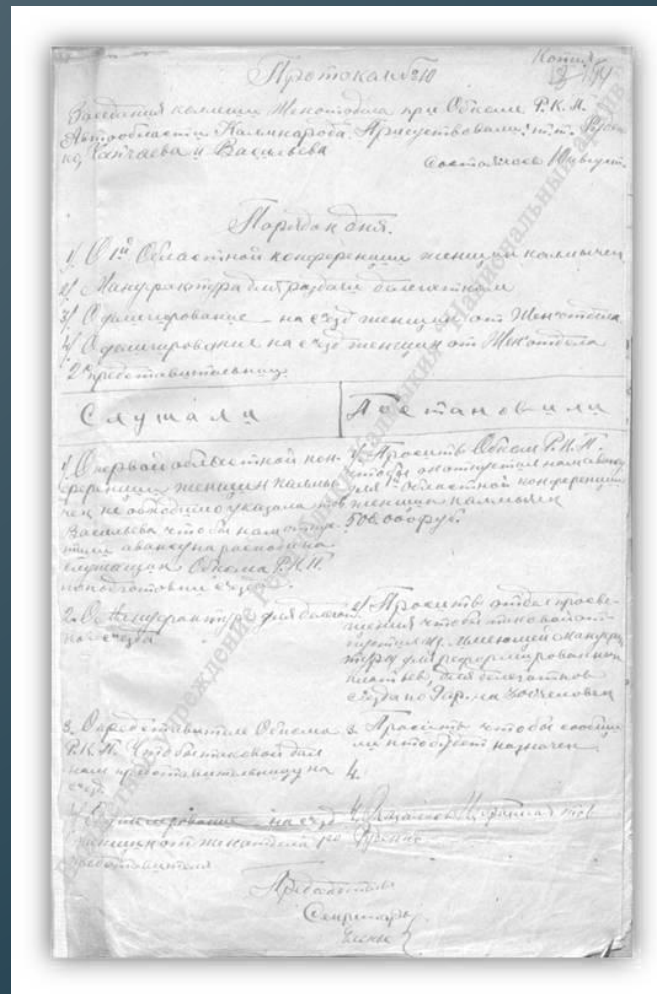 Копия
Протокол №10
Заседания коллегии Женотдела при Обкоме Р.К.П.
Автообласти Калмнарода. Присутствовали: т.т.
Хапчаева и Васильева
Состоявшееся 10 август.
Порядок дня.
1/ О 1й Областной конференции женщин калмычек
2/ Мануфактура для раздачи делегаткам
3/ О делегирование на съезд женщин от Женотдела
4/ О делегирование на съезд женщин от Женотдела
2х представительниц.
Слушали
Постановили
1/ О первой областной кон-
ференции женщин калмы-
чек необходимо указала тов
Васильева чтобы нам отпу-
стили аванс на расходы на
служащих Обкома Р.К.П.
по подготовки съезда.
1/ Просить Обком Р.К.П.
чтобы он отпустил нам аванс
для 1й Областной конференции
женщин калмычек
500.000 руб.
2. О Мануфактур для делегат
на съезда
2/ Просить отдел просве-
щения чтобы таковой от-
пустил из имеющей Мануфак
туры для реформированных
платьев, для делегатков
съезда по на человек
3. О представителе Обкома
Р.К.П. чтобы таковой дал
нам представительницу на
съезд
3. Просить чтобы сообщи
ли кто будет назначен
4.
4/ Делегирование на съезд
женщин от женотдела
представителя
4. тов
Председатель
Секретарь
Члены
Государственное учреждение Республики Калмыкия "Национальный архив"